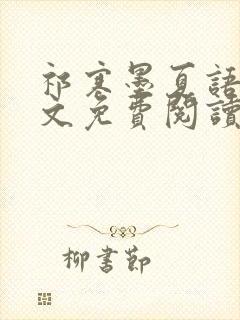 祁寒墨夏語
文免費閱讀
柳書節